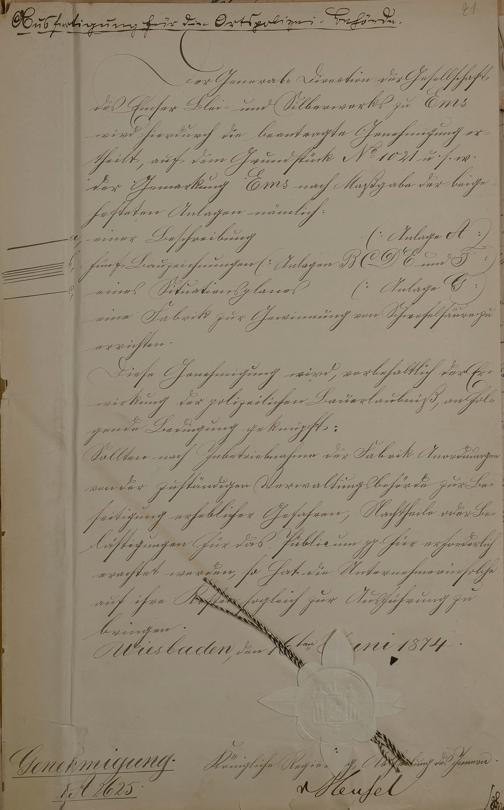 81
Ausfertigung für die Ortspolizei-Behörde.
Der General-Direction der Gesellschaft
des Emser Blei- und Silberwerks zu Ems
wird hierdurch die beantragte Genehmigung er-
theilt, auf dem Grundstück No 1021 u. s. w.
der Gemarkung Ems nach Maßgabe der beige-
hefteten Anlagen nämlich:
a, einer Beschreibung (: Anlage A :)
b, fünf Bauzeichnungen (: Anlagen B C D E und F :)
c, eines Situationsplanes (: Anlage G :)
eine Fabrik zur Gewinnung von Schwefelsäure zu
errichten.
Diese Genehmigung wird, vorbehaltlich der Er-
wirkung der polizeilichen Bauerlaubniß, an fol-
gende Bedingung geknüpft:
Sollten nach Inbetriebnahme der Fabrik Anordnungen
von der zuständigen Verwaltungsbehörde zur Be-
seitigung erheblicher Gefahren, Nachtheile oder Be-
lästigungen für das Publicum pp für erforderlich
erachtet werden, so hat die Unternehmerin solche
auf ihre Kosten sogleich zur Ausführung zu
bringen.
Wiesbaden, den ten Juni 1874.
Königliche Regierung, Abtheilung des Innern.
Genehmigung.
I. A 2625.